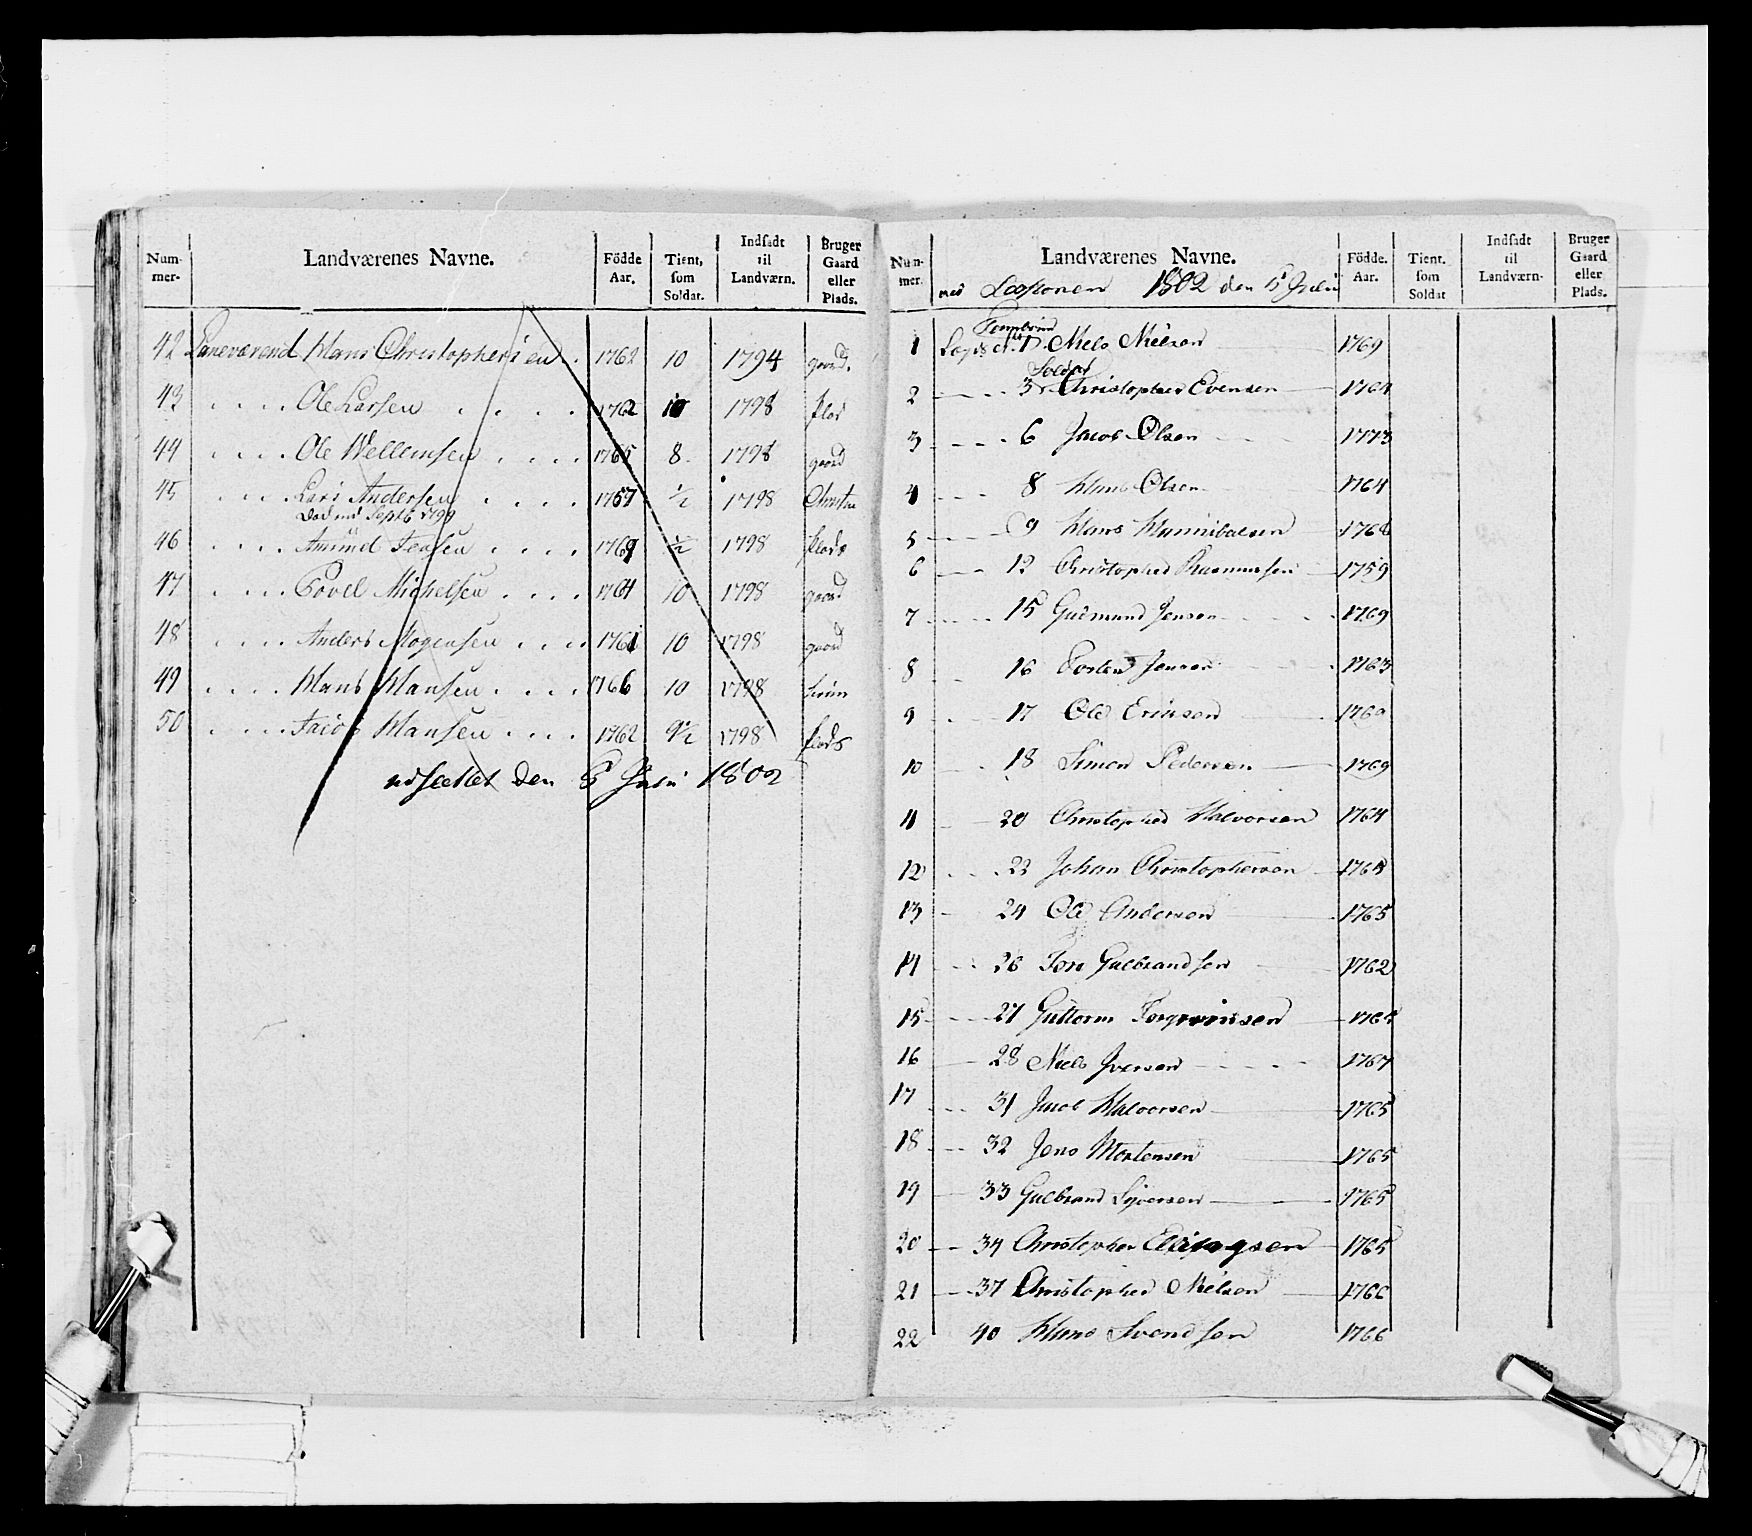 Num-
mer-
Landværenes Navne.
Födde
Aar.
Tient,
som
Soldat.
Indsadt
til
Landværn.
Bruger
Gaard
eller
Plads.
42 Hans Christophersen . 1762 10 1794 gaard.
43 . . . . Ole Larsen . . . . 1762 10 1798
44 . . . . Ole Wellemsen . . . . 1765 8 1798 gaard
45 . . . Lars Andersen . . . . 1757 ½ 1798
Død 1799
46 . . . . Amund Jensen . . . . 1769 ½ 1798 plads
47 . . . . Povel Michelsen . . . . 1764 10 1798 gaard
48 . . . . Anders Mogensen . . . . 1761 10 1798 gaard
49 . . . . Hans Hansen . . . . 1766 10 1798
50 . . . . Jacob Hansen . . . . 1762 9½ 1798 plads
udsettet den 5 Juli 1802
Num-
mer.
Landværenes Navne.
Födde.
Aar.
Tient.
som
Soldat
Indsadt
til
Landværn-
Bruger
Gaard
eller
Plads.
1802 den 5 Juli
1 Niels Nielsen 1769
Soldat
2 3 Christopher Evensen 1764
3 6 Jacob Olsen 1773
4 8 Hans Olsen 1764
5 9 Hans Hannibalsen 1768
6 12 Christopher Rasmussen 1759
7 15 Gudmund Jensen 1769
8 16 Torsten Jensen 1763
9 17 Ole Ericsen 1769
10 18 Simon Pedersen 1769
11 20 Christopher Halvorsen 1764
12 23 Johan Christophersen 1764
13 24 Ole Andersen 1765
14 26 Tore Gulbrandsen 1762
15 27 Guttorm 1765
16 28 Niels Iversen 1767
17 31 Jacob Halvorsen 1765
18 32 Jens Mortensen 1765
19 33 Gulbrand Syversen 1765
20 34 Christopher Ellingsen 1765
21 37 Christopher Nielsen 1766
22 40 Hans Svendsen 1766